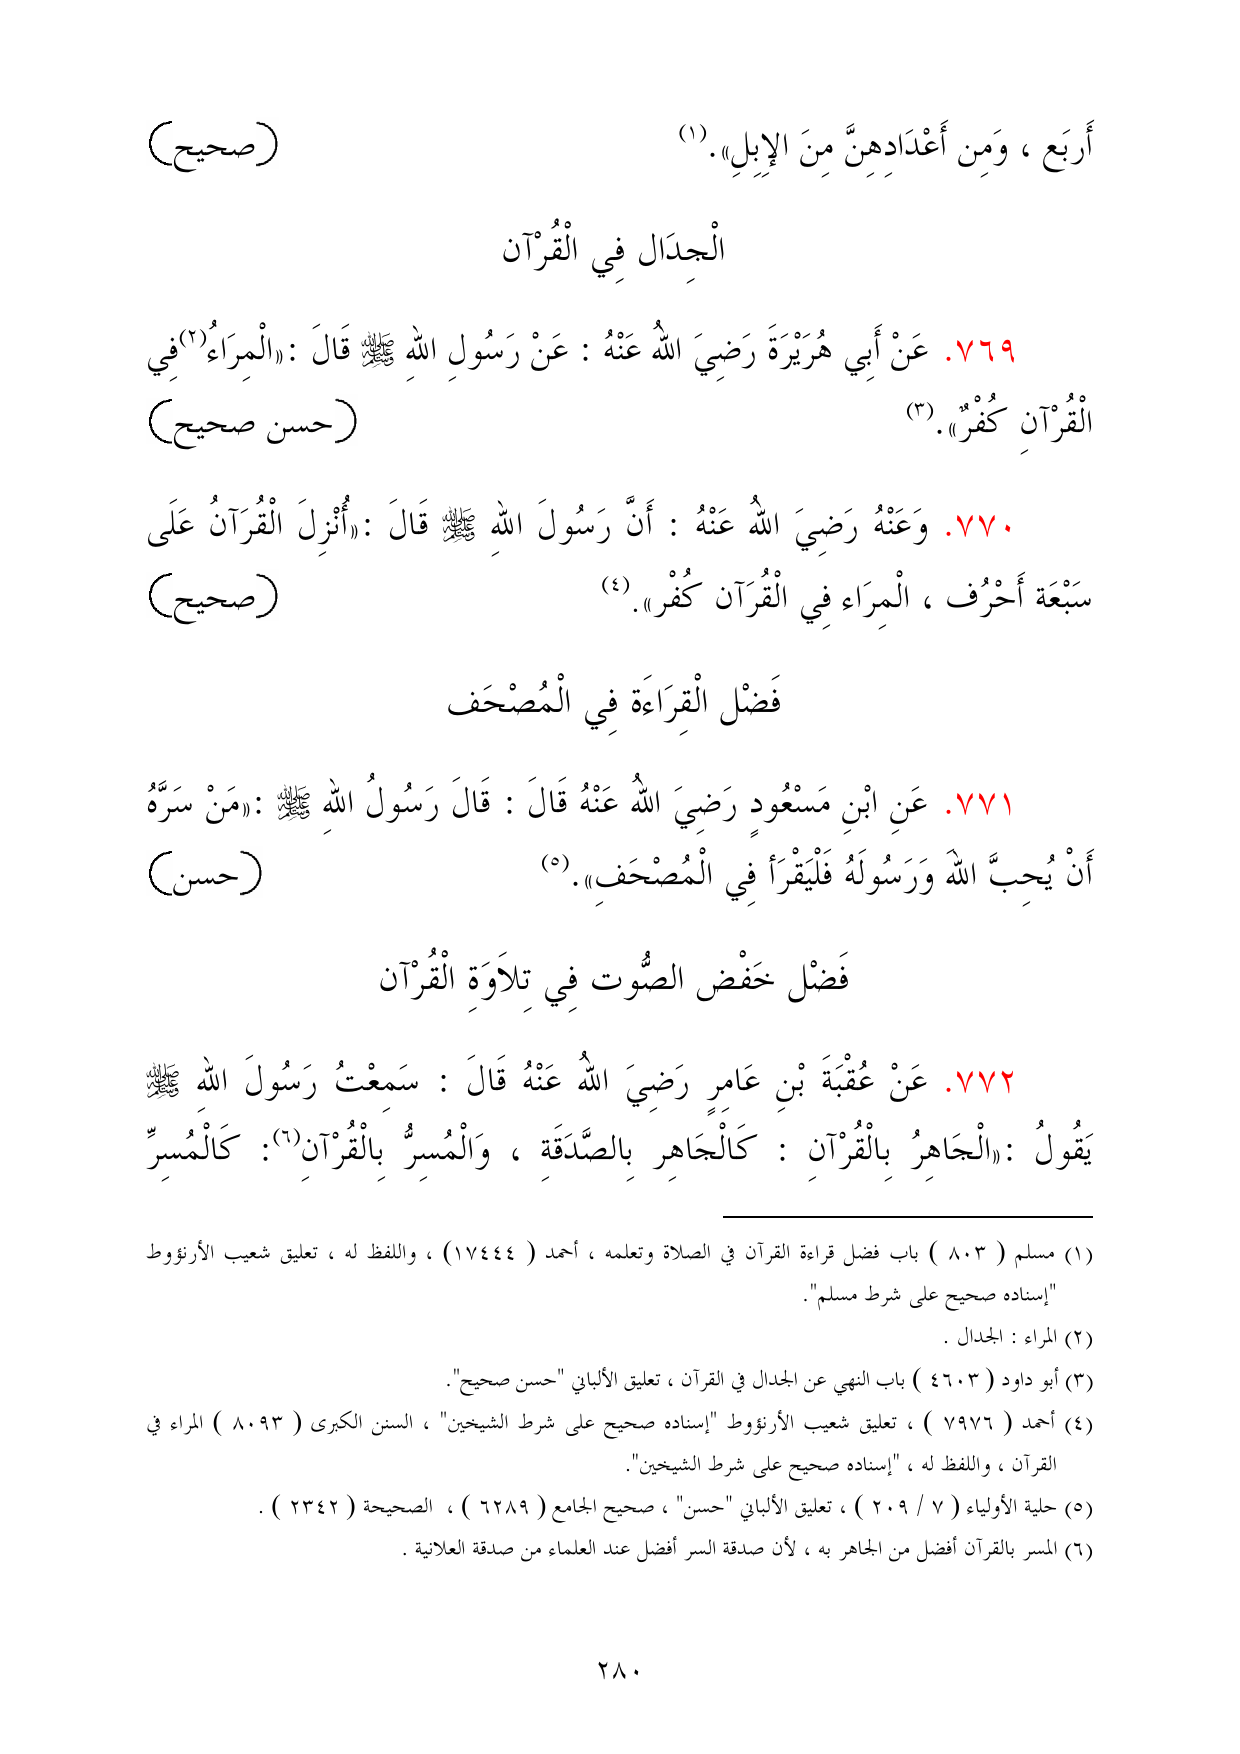 أَربَع ، وَمِن أَعْدَادِهِنَّ مِنَ الإِبِلِ».(١) (صحيح)
الْجِدَال فِي الْقُرْآن
٧٦٩. عَنْ أَبِي هُرَيْرَةَ رَضِيَ اللهُ عَنْهُ : عَنْ رَسُولِ اللهِ ﷺ قَالَ :«الْمِرَاءُ(٢)فِي
الْقُرْآنِ كُفْرٌ».(٣) (حسن صحيح)
٧٧٠. وَعَنْهُ رَضِيَ اللهُ عَنْهُ : أَنَّ رَسُولَ اللهِ ﷺ قَالَ :«أُنْزِلَ الْقُرَآنُ عَلَى
سَبْعَة أَحْرُف ، الْمِرَاء فِي الْقُرَآن كُفْر».(٤) (صحيح)
فَضْل الْقِرَاءَة فِي الْمُصْحَف
٧٧١. عَنِ ابْنِ مَسْعُودٍ رَضِيَ اللهُ عَنْهُ قَالَ : قَالَ رَسُولُ اللهِ ﷺ :«مَنْ سَرَّهُ
أَنْ يُحِبَّ اللهَ وَرَسُولَهُ فَلْيَقْرَأ فِي الْمُصْحَفِ».(٥) (حسن)
فَضْل خَفْض الصُّوت فِي تِلاَوَةِ الْقُرْآن
٧٧٢. عَنْ عُقْبَةَ بْنِ عَامِرٍ رَضِيَ اللهُ عَنْهُ قَالَ : سَمِعْتُ رَسُولَ اللهِ ﷺ
يَقُولُ :«الْجَاهِرُ بِالْقُرْآنِ : كَالْجَاهِر بِالصَّدَقَةِ ، وَالْمُسِرُّ بِالْقُرْآنِ(٦): كَالْمُسِرِّ
(١) مسلم ( ٨٠٣ ) باب فضل قراءة القرآن في الصلاة وتعلمه ، أحمد ( ١٧٤٤٤) ، واللفظ له ، تعليق شعيب الأرنؤوط
"إسناده صحيح على شرط مسلم".
(٢) المراء : الجدال .
(٣) أبو داود ( ٤٦٠٣ ) باب النهي عن الجدال في القرآن ، تعليق الألباني "حسن صحيح".
(٤) أحمد ( ٧٩٧٦ ) ، تعليق شعيب الأرنؤوط "إسناده صحيح على شرط الشيخين" ، السنن الكبرى ( ٨٠٩٣ ) المراء في
القرآن ، واللفظ له ، "إسناده صحيح على شرط الشيخين".
(٥) حلية الأولياء ( ٧ / ٢٠٩ ) ، تعليق الألباني "حسن" ، صحيح الجامع ( ٦٢٨٩ ) ، الصحيحة ( ٢٣٤٢ ) .
(٦) المسر بالقرآن أفضل من الجاهر به ، لأن صدقة السر أفضل عند العلماء من صدقة العلانية .
٢٨٠